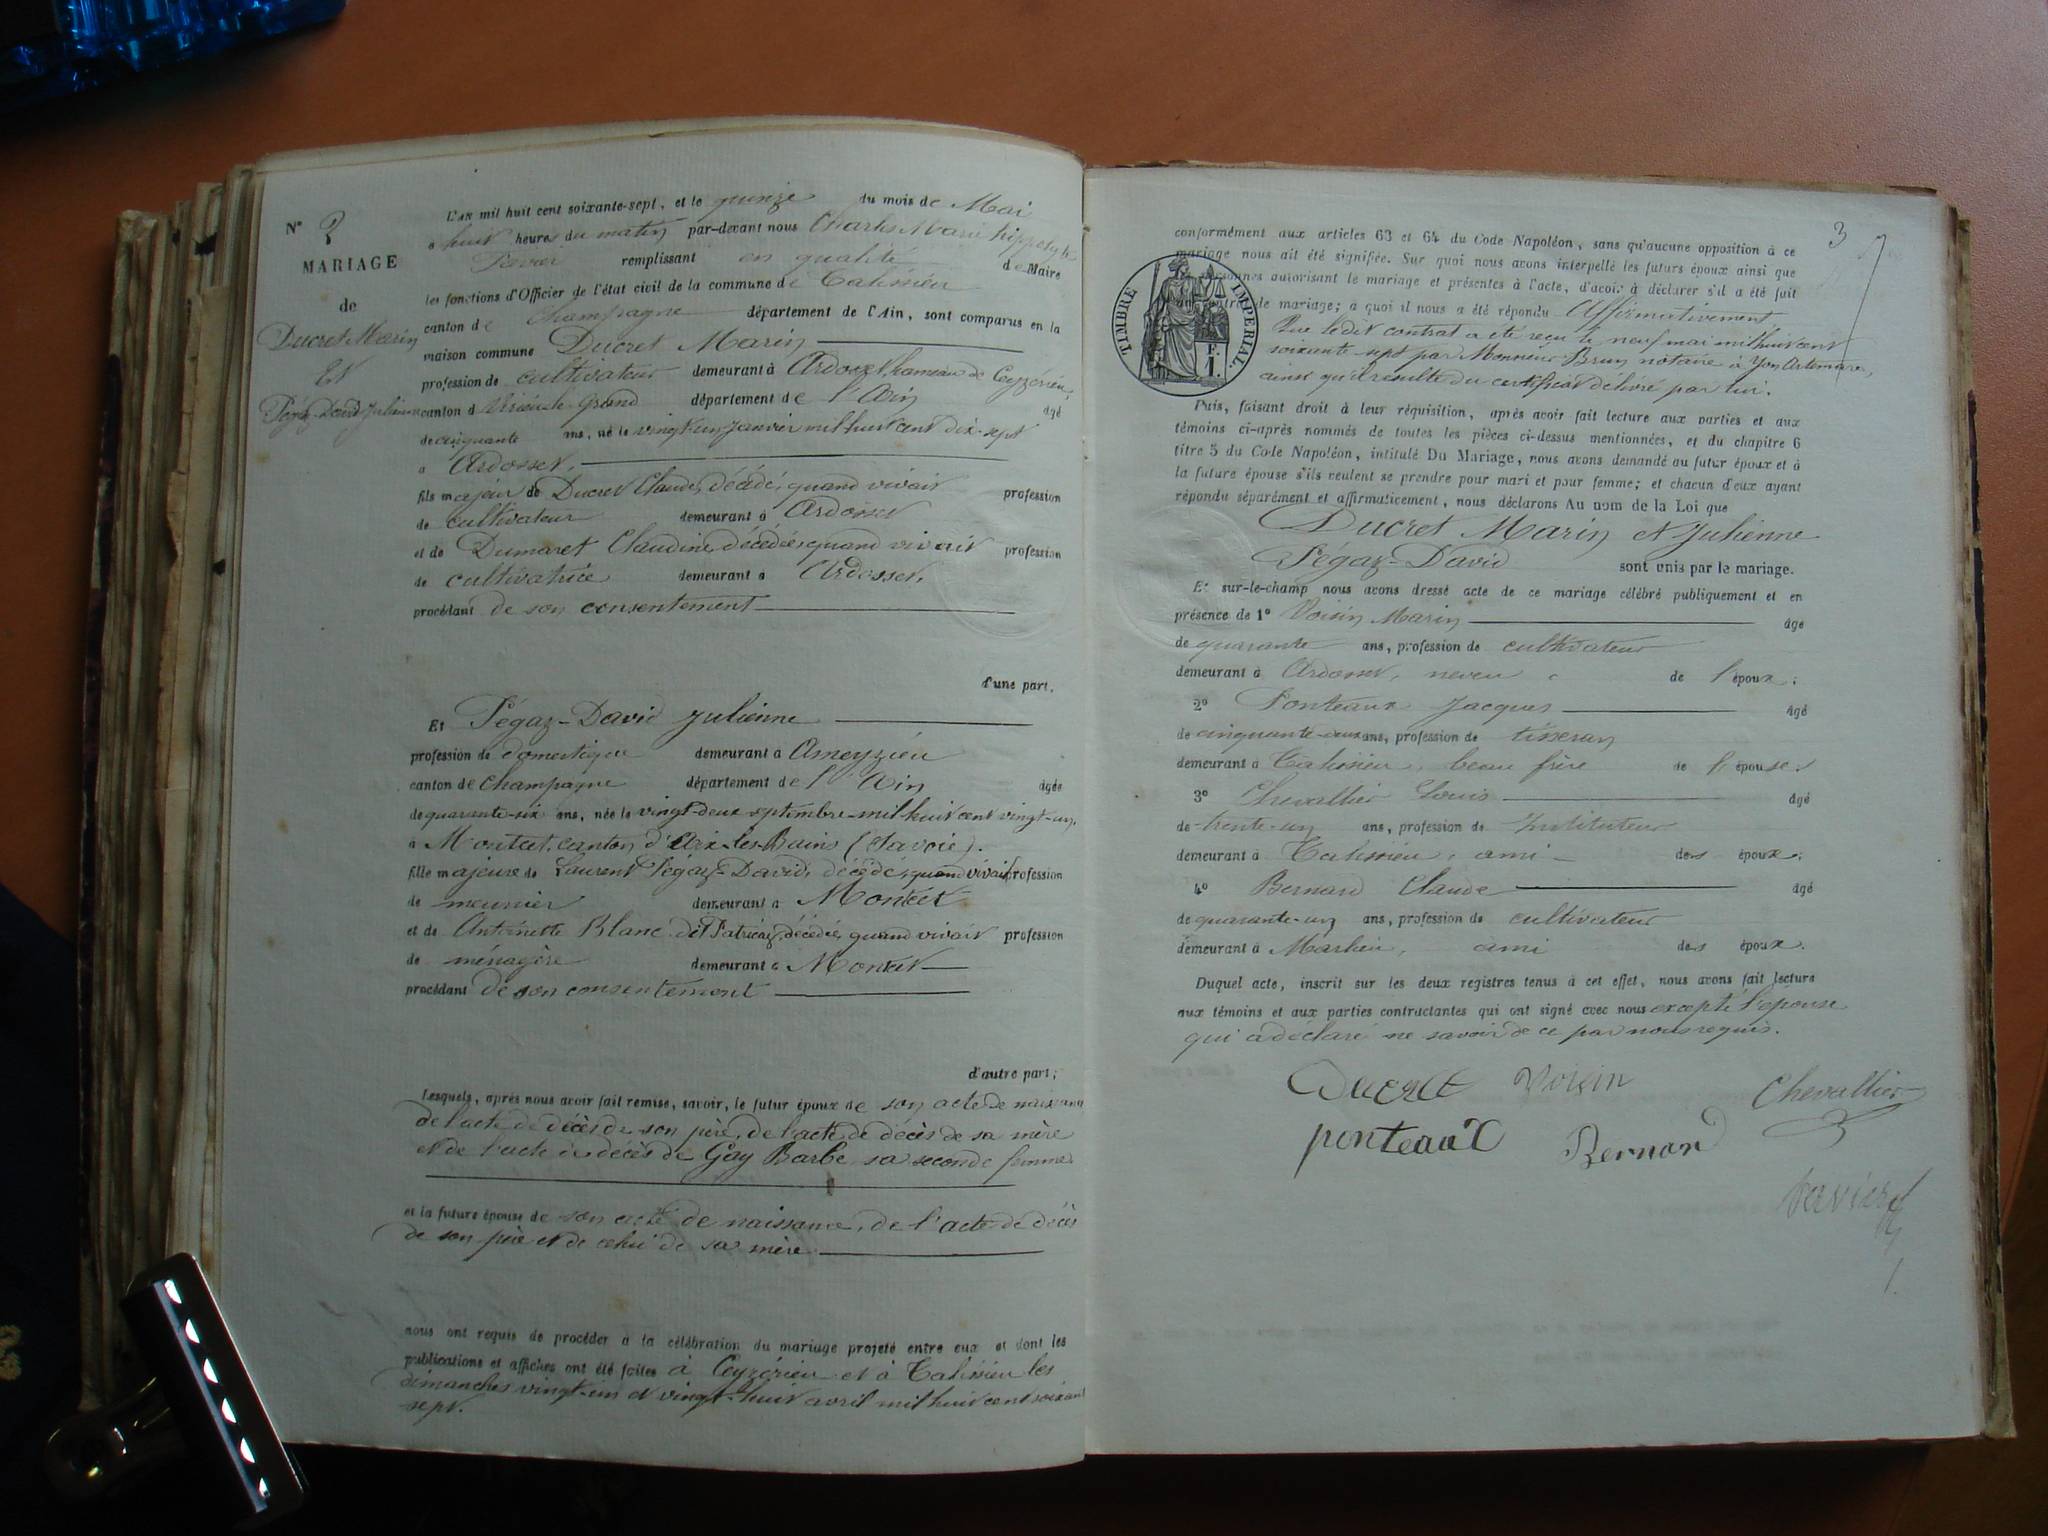 N° 2
MARIAGE
de
Ducret Marin
Et
Pégaz-David Julienne
L'AN mil huit cent soixante-sept, et le quinze du mois de Mai
à huit heures du matin par-devant nous Charles Marie hippolyte
Tavier remplissant en qualité de Maire
les fonctions d'Officier de l'état civil de la commune de Talissieu
canton de Champagne département de l'Ain, sont comparus en la
maison commune Ducret Marin
profession de cultivateur demeurant à Ardosset, hameau de Ceyzérieu,
canton d Virieu-le-Grand département de l'Ain âgé
de cinquante ans, né le vingt un Janvier mil huit cent dix-sept
à Ardosset,
fils majeur de Ducret Claude, décédé, quand vivait profession
de cultivateur demeurant à Ardosset
et de Dumaret Claudine décédée, quand vivait profession
de cultivatrice demeurant à Ardosset,
procédant de son consentement
d'une part,
Et Pégaz-David Julienne
profession de domestique demeurant à Ameyzieu
canton de Champagne département de l'Ain âgée
de quarante-six ans, née le vingt-deux septembre mil huit cent vingt-un,
à Montcet, canton d'Aix-les-Bains (Savoie).
fille majeure de Laurent Pégaz-David, décédé, quand vivait profession
de meunier demeurant à Montcet
et de Antoinette Blanc dit Patricaz, décédée, quand vivait profession
de ménagère demeurant à Montcet
procédant de son consentement
d'autre part;
Lesquels, après nous avoir fait remise, savoir, le futur époux de son acte de naissance
de l'acte de décès de son père, de l'acte de décès de sa mère
et de l'acte de décès de Gay Barbe sa seconde femme
et la future épouse de son acte de naissance, de l'acte de décès
de son père et de celui de sa mère
nous ont requis de procéder à la célébration du mariage projeté entre eux et dont les
publications et affiches ont été faites à Ceyzérieu et à Talissieu les
dimanches vingt-un et vingt-huit avril mil huit cent soixant
sept.
3
conformément aux articles 63 et 64 du Code Napoléon, sans qu'aucune opposition à ce
mariage nous ait été signifiée. Sur quoi nous avons interpellé les futurs époux ainsi que
personnes autorisant le mariage et présentes à l'acte, d'avoir à déclarer s'il a été fait
de mariage; à quoi il nous a été répondu Affirmativement
Que ledit contrat a été reçu le neuf mai mil huit cent
soixante-sept par Monsieur Brun notaire à Yon Artemare,
ainsi qu'il résulte du certificat délivré par lui.
TIMBRE IMPERIAL
F.
1.
Puis, faisant droit à leur réquisition, après avoir fait lecture aux parties et aux
témoins ci-après nommés de toutes les pièces ci-dessus mentionnées, et du chapitre 6
titre 5 du Code Napoléon, intitulé Du Mariage, nous avons demandé au futur époux et à
la future épouse s'ils veulent se prendre pour mari et pour femme; et chacun d'eux ayant
répondu séparément et affirmativement, nous déclarons Au nom de la Loi que
Ducret Marin et Julienne
Pégaz-David sont unis par le mariage.
Et sur-le-champ nous avons dressé acte de ce mariage célébré publiquement et en
présence de 1° Voisin Marin âgé
de quarante ans, profession de cultivateur
demeurant à Ardosset, neveu de l'époux;
2° Ponteaux Jacques âgé
de cinquante-deux ans, profession de tisseran
demeurant à Talissieu, beau frère de l'épouse;
3° Chevallier Louis âgé
de trente-un ans, profession de Instituteur
demeurant à Talissieu, ami des époux;
4° Bernard Claude âgé
de quarante-un ans, profession de cultivateur
demeurant à Marlieu, ami des époux.
Duquel acte, inscrit sur les deux registres tenus à cet effet, nous avons fait lecture
aux témoins et aux parties contractantes qui ont signé avec nous excepté l'épouse
qui a déclaré ne savoir de ce par nous requis.
Ducret Voisin Chevallier
ponteaux Bernard
Tavier